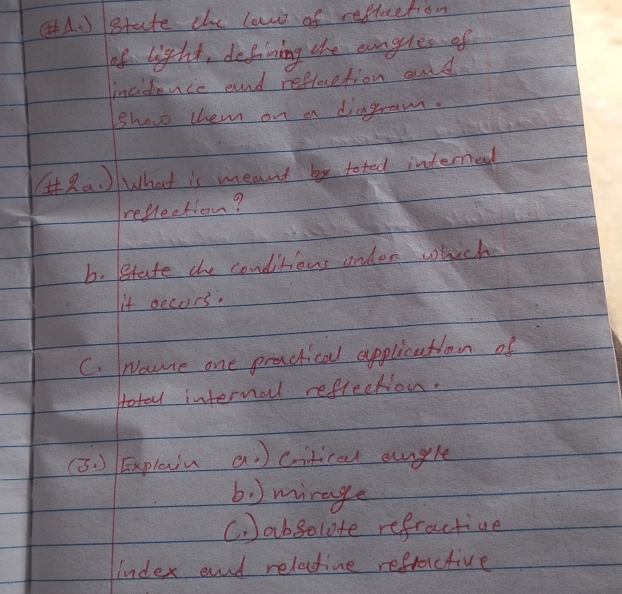 (#1.) State the laws of reflection
of light, defining the angles of
incidence and reflection and
show them on a diagram.
(#2a.) What is meant by total internal
reflection?
b. State the conditions under which
it occurs.
C. Name one practical application of
total internal reflection.
(3.) Explain a.) Critical angle
b.) mirage
C.) absolute refractive
index and relative refractive